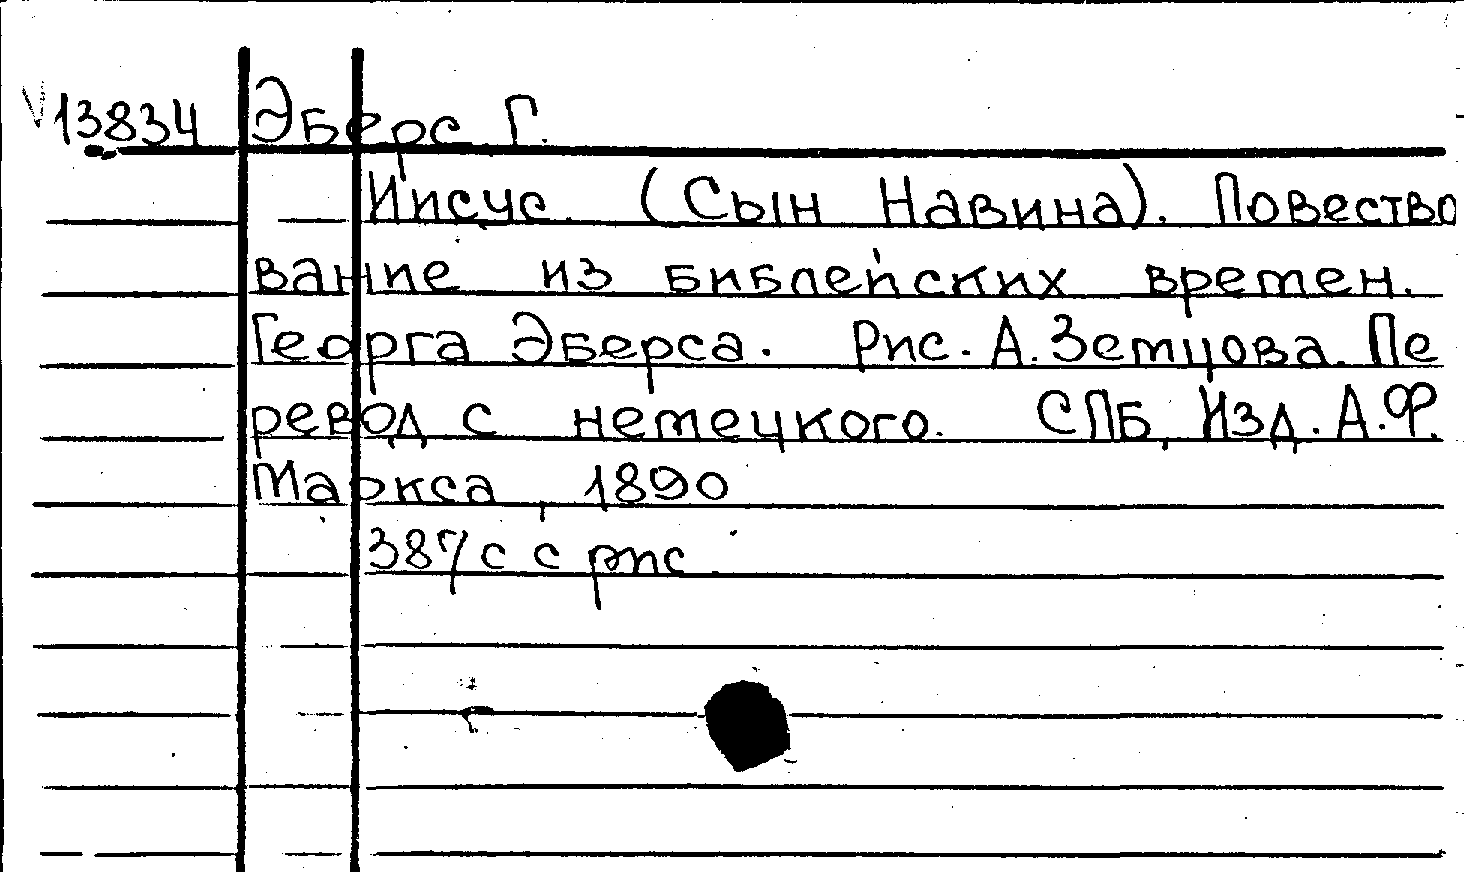 13834 Эберс Г.
Иисус (Сын Навина). Повество
вание из библейских времен.
Георга Эберса. Рис. А. Земцова. Пе
ревод с немецкого. СПБ, Изд. А.Ф.
Маркса, 1890
387 с с рис.